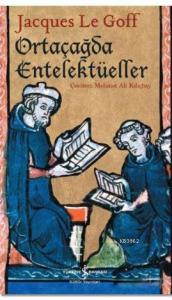 Jacques Le Goff
Ortaçağda
Entelektüeller
Çeviren: Mehmet Ali Kılıçbay
K83862
Kültür Yayınları